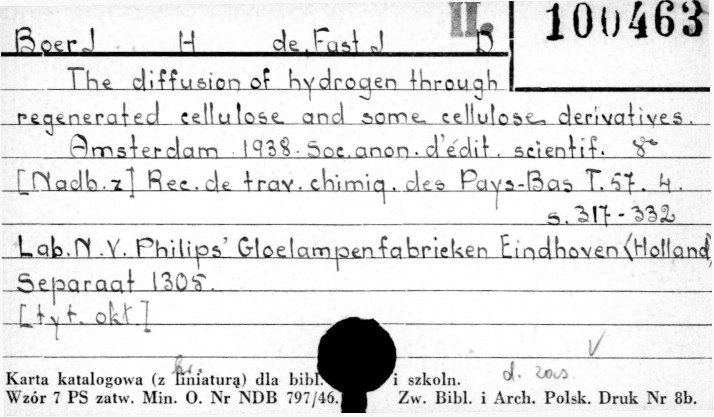 II. 100463
Boer J H de, Fast J D
The diffusion of hydrogen through
regenerated cellulose and some cellulose derivatives.
Amsterdam 1938. Soc. anon. d'édit. scientif. 8°
[Nadb. z] Rec. de trav. chimiq. des Pays-Bas T. 57. 4.
s. 317-332
Lab. N. V. Philips' Gloelampenfabrieken Eindhoven (Holland)
Separaat 1305.
[tyt. okł]
Karta katalogowa (z liniaturą) dla bibl. i szkoln.
Wzór 7 PS zatw. Min. O. Nr NDB 797/46. Zw. Bibl. i Arch. Polsk. Druk Nr 8b.